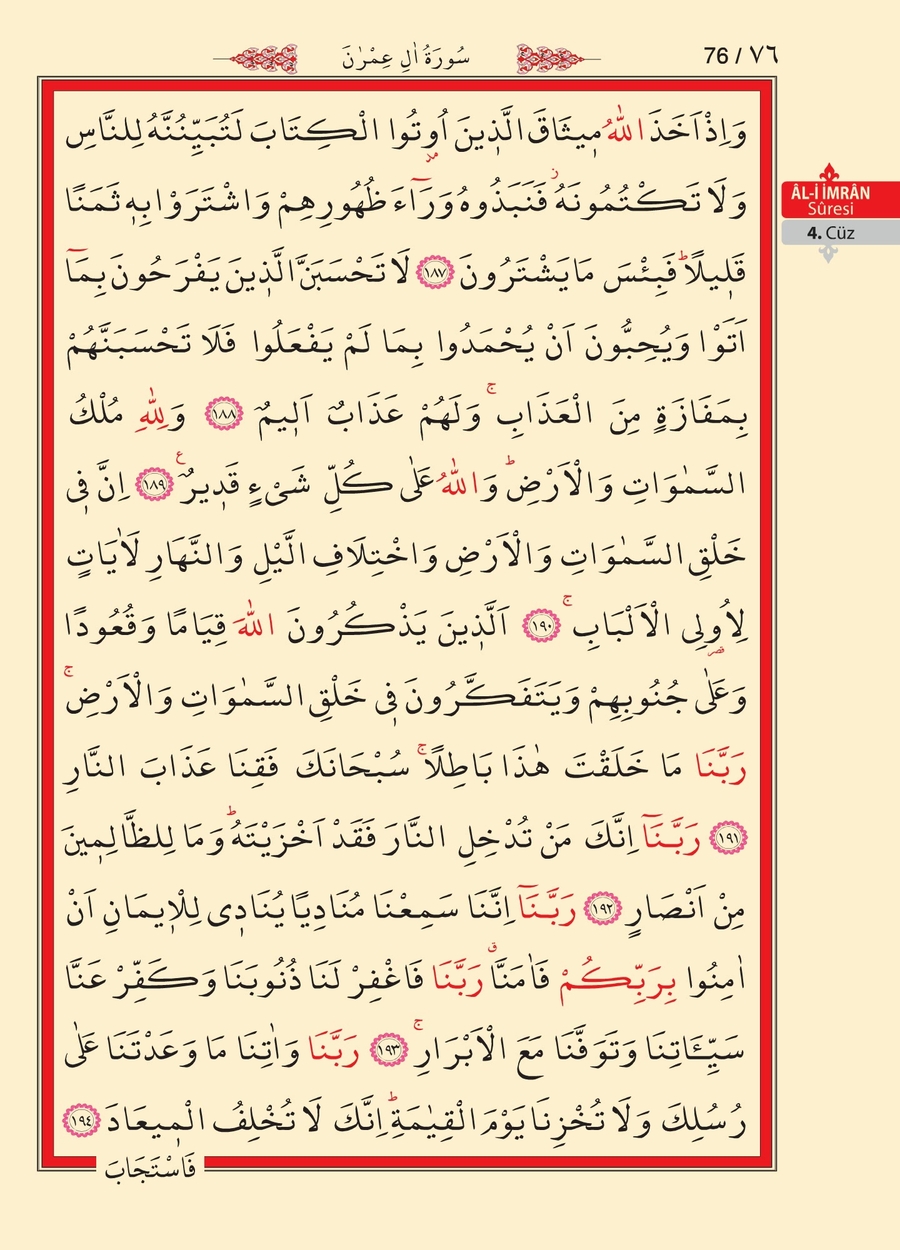 سُورَةُ اٰلِ عِمْرٰنَ
76 / ٧٦
وَاِذْ اَخَذَ اللّٰهُ مٖيثَاقَ الَّذٖينَ اُو۫تُوا الْكِتَابَ لَتُبَيِّنُنَّهُ لِلنَّاسِ
وَلَا تَكْتُمُونَهُۘ فَنَبَذُوهُ وَرَٓاءَ ظُهُورِهِمْ وَاشْتَرَوْا بِهٖ ثَمَنًا
قَلٖيلًاؕ فَبِئْسَ مَا يَشْتَرُونَ ﴿١٨٧﴾ لَا تَحْسَبَنَّ الَّذٖينَ يَفْرَحُونَ بِمَٓا
اَتَوْا وَيُحِبُّونَ اَنْ يُحْمَدُوا بِمَا لَمْ يَفْعَلُوا فَلَا تَحْسَبَنَّهُمْ
بِمَفَازَةٍ مِنَ الْعَذَابِۚ وَلَهُمْ عَذَابٌ اَلٖيمٌ ﴿١٨٨﴾ وَلِلّٰهِ مُلْكُ
السَّمٰوَاتِ وَالْاَرْضِؕ وَاللّٰهُ عَلٰى كُلِّ شَیْءٍ قَدٖيرٌ ع ﴿١٨٩﴾ اِنَّ فٖى
خَلْقِ السَّمٰوَاتِ وَالْاَرْضِ وَاخْتِلَافِ الَّيْلِ وَالنَّهَارِ لَاٰيَاتٍ
لِاُو۬لِى الْاَلْبَابِۚ ﴿١٩٠﴾ اَلَّذٖينَ يَذْكُرُونَ اللّٰهَ قِيَامًا وَقُعُودًا
وَعَلٰى جُنُوبِهِمْ وَيَتَفَكَّرُونَ فٖى خَلْقِ السَّمٰوَاتِ وَالْاَرْضِۚ
رَبَّنَا مَا خَلَقْتَ هٰذَا بَاطِلًاۚ سُبْحَانَكَ فَقِنَا عَذَابَ النَّارِ
﴿١٩١﴾ رَبَّنَٓا اِنَّكَ مَنْ تُدْخِلِ النَّارَ فَقَدْ اَخْزَيْتَهُؕ وَمَا لِلظَّالِمٖينَ
مِنْ اَنْصَارٍ ﴿١٩٢﴾ رَبَّنَٓا اِنَّنَا سَمِعْنَا مُنَادِيًا يُنَادٖى لِلْاٖيمَانِ اَنْ
اٰمِنُوا بِرَبِّكُمْ فَاٰمَنَّاۗ رَبَّنَا فَاغْفِرْ لَنَا ذُنُوبَنَا وَكَفِّرْ عَنَّا
سَيِّـَٔاتِنَا وَتَوَفَّنَا مَعَ الْاَبْرَارِۚ ﴿١٩٣﴾ رَبَّنَا وَاٰتِنَا مَا وَعَدْتَنَا عَلٰى
رُسُلِكَ وَلَا تُخْزِنَا يَوْمَ الْقِيٰمَةِؕ اِنَّكَ لَا تُخْلِفُ الْمٖيعَادَ ﴿١٩٤﴾
فَاسْتَجَابَ
ÂL-İ İMRÂN
Sûresi
4. Cüz